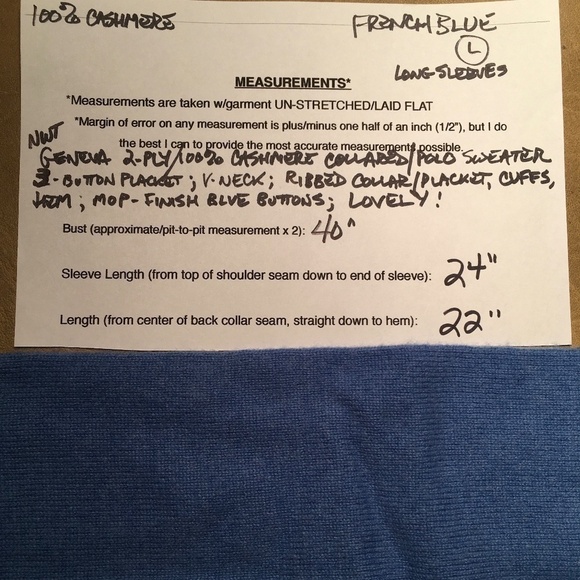 100% CASHMERE
FRENCH BLUE
L
LONG SLEEVES
MEASUREMENTS*
*Measurements are taken w/garment UN-STRETCHED/LAID FLAT
*Margin of error on any measurement is plus/minus one half of an inch (1/2"), but I do
the best I can to provide the most accurate measurements possible.
NWT
GENEVA 2-PLY/100% CASHMERE COLLARED/POLO SWEATER
3-BUTTON PLACKET; V-NECK; RIBBED COLLAR/PLACKET, CUFFS,
HEM; MOP-FINISH BLUE BUTTONS; LOVELY!
Bust (approximate/pit-to-pit measurement x 2): 40"
Sleeve Length (from top of shoulder seam down to end of sleeve): 24"
Length (from center of back collar seam, straight down to hem): 22"